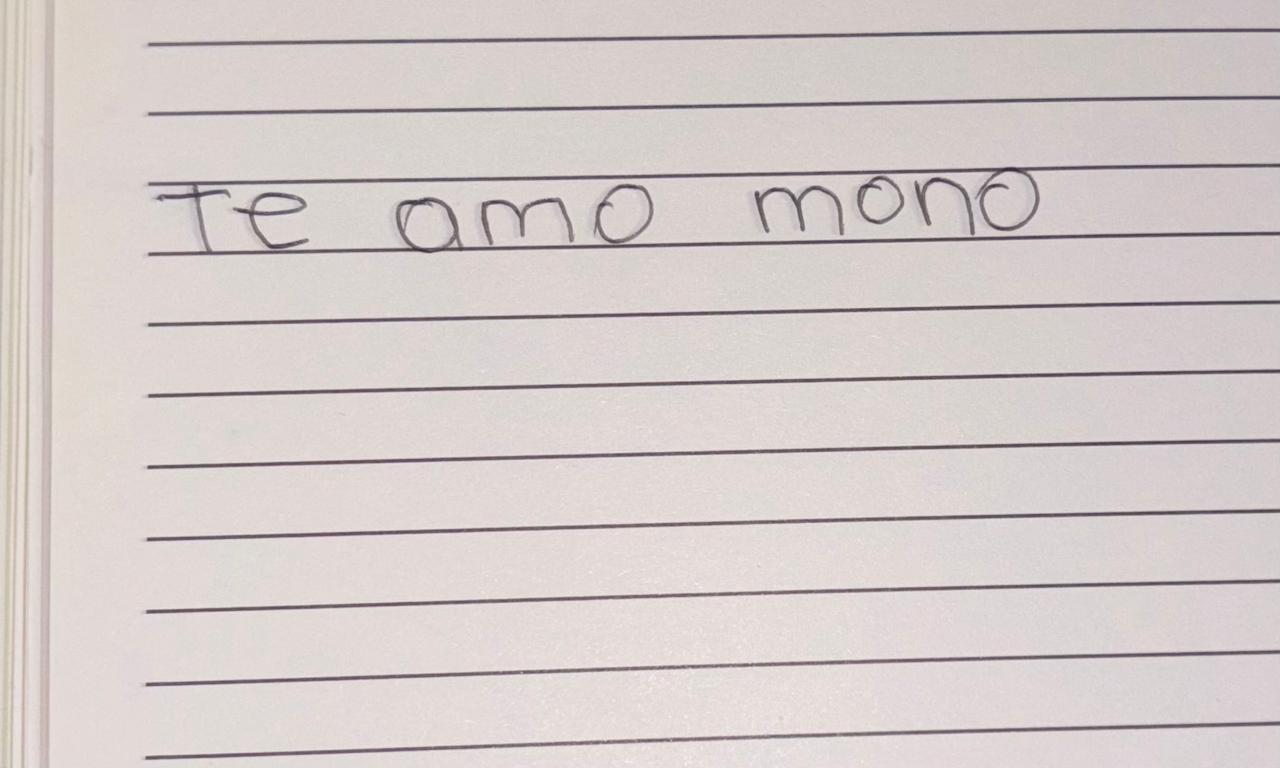 Te amo mono